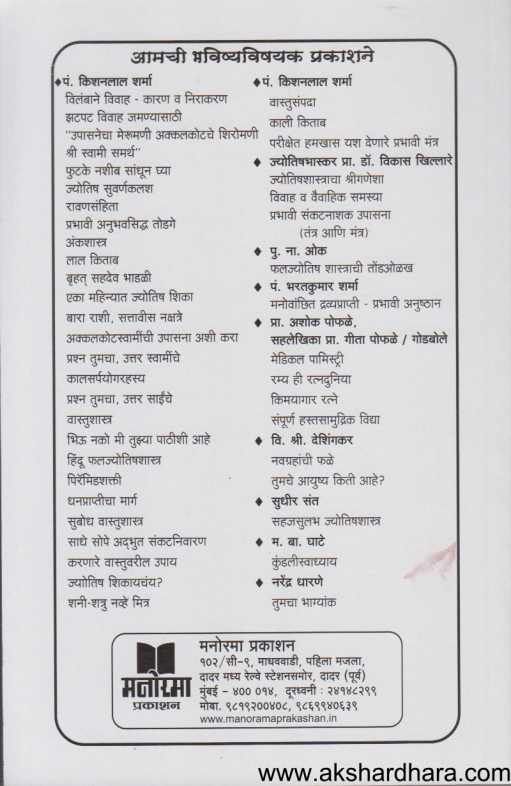 आमची भविष्यविषयक प्रकाशने
◆पं. किशनलाल शर्मा
विलंबाने विवाह - कारण व निराकरण
झटपट विवाह जमण्यासाठी
"उपासनेचा मेरूमणी अक्कलकोटचे शिरोमणी
श्री स्वामी समर्थ"
फुटके नशीब सांधून घ्या
ज्योतिष सुवर्णकलश
रावणसंहिता
प्रभावी अनुभवसिद्ध तोडगे
अंकशास्त्र
लाल किताब
बृहत् सहदेव भाडळी
एका महिन्यात ज्योतिष शिका
बारा राशी, सत्तावीस नक्षत्रे
अक्कलकोटस्वामींची उपासना अशी करा
प्रश्न तुमचा, उत्तर स्वामींचे
कालसर्पयोगरहस्य
प्रश्न तुमचा, उत्तर साईंचे
वास्तुशास्त्र
भिऊ नको मी तुझ्या पाठीशी आहे
हिंदू फलज्योतिषशास्त्र
पिरॅमिडशक्ती
धनप्राप्तीचा मार्ग
सुबोध वास्तुशास्त्र
साधे सोपे अद्भुत संकटनिवारण
करणारे वास्तुवरील उपाय
ज्योतिष शिकायचंय?
शनी-शत्रु नव्हे मित्र
◆पं. किशनलाल शर्मा
वास्तुसंपदा
काली किताब
परीक्षेत हमखास यश देणारे प्रभावी मंत्र
◆ ज्योतिषभास्कर प्रा. डॉ. विकास खिल्लारे
ज्योतिषशास्त्राचा श्रीगणेशा
विवाह व वैवाहिक समस्या
प्रभावी संकटनाशक उपासना
(तंत्र आणि मंत्र)
◆ पु. ना. ओक
फलज्योतिष शास्त्राची तोंडओळख
◆ पं. भरतकुमार शर्मा
मनोवांछित द्रव्यप्राप्ती - प्रभावी अनुष्ठान
◆ प्रा. अशोक पोफळे,
सहलेखिका प्रा. गीता पोफळे / गोडबोले
मेडिकल पामिस्ट्री
रम्य ही रत्नदुनिया
किमयागार रत्ने
संपूर्ण हस्तसामुद्रिक विद्या
◆ वि. श्री. देशिंगकर
नवग्रहांची फळे
तुमचे आयुष्य किती आहे?
◆ सुधीर संत
सहजसुलभ ज्योतिषशास्त्र
◆ म. बा. घाटे
कुंडलीस्वाध्याय
◆ नरेंद्र धारणे
तुमचा भाग्यांक
मनोरमा
प्रकाशन
मनोरमा प्रकाशन
१०२/सी-९, माधववाडी, पहिला मजला,
दादर मध्य रेल्वे स्टेशनसमोर, दादर (पूर्व)
मुंबई - ४०० ०१४, दूरध्वनी : २४१४८२९९
मोबा. ९८१९२००४०८, ९८६९९४०६३९
www.manoramaprakashan.in
www.akshardhara.com